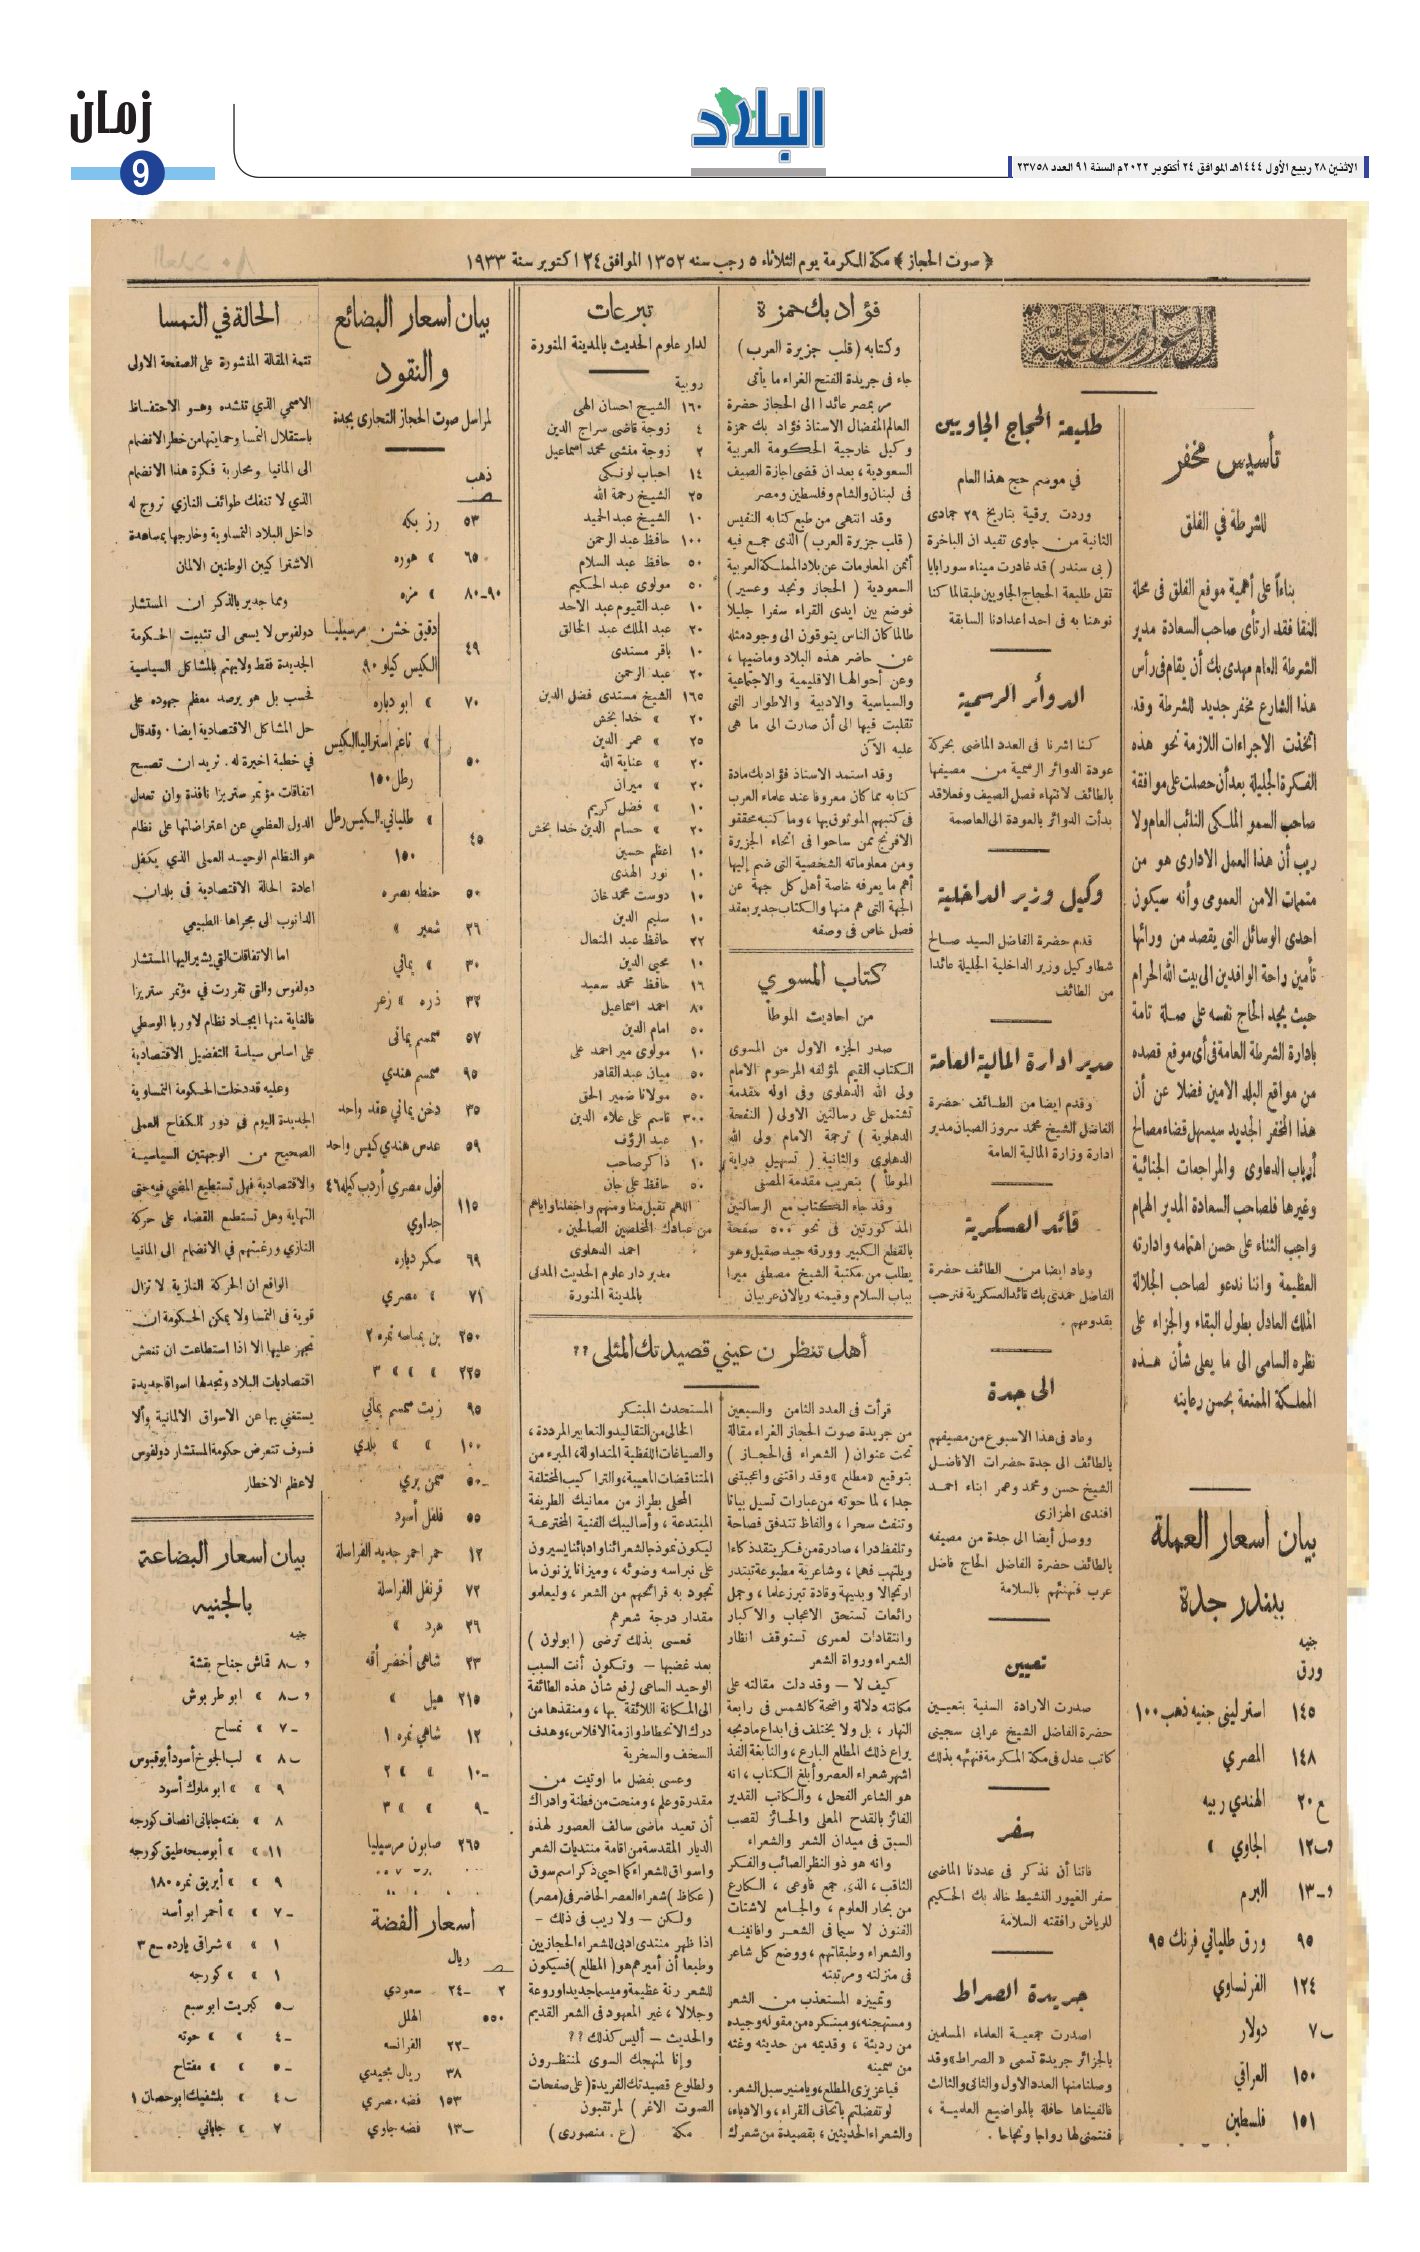 زمان
9
البلاد
الاثنين ٢٨ ربيع الأول ١٤٤٤هـ الموافق ٢٤ أكتوبر ٢٠٢٢م السنة ٩١ العدد ٢٣٧٥٨
﴿ صوت الحجاز ﴾ مكة المكرمة يوم الثلاثاء ٥ رجب سنه ١٣٥٢ الموافق ٢٤ اكتوبر سنة ١٩٣٣
تأسيس مخفر
للشرطة في الفلق
بناءاً على أهمية موقع الفلق فى محلة
النقا فقد ارتأى صاحب السعادة مدير
الشرطة العام مهدى بك أن يقام فى رأس
هذا الشارع مخفر جديد للشرطة وقد
اتخذت الاجراءات اللازمة نحو هذه
الفكرة الجليلة بعد أن حصلت على موافقة
صاحب السمو الملكى النائب العام ولا
ريب أن هذا العمل الادارى هو من
متممات الامن العمومى وأنه سيكون
احدى الوسائل التى يقصد من ورائها
تأمين راحة الوافدين الى بيت الله الحرام
حيث يجد الحاج نفسه على صلة تامة
بادارة الشرطة العامة فى أى موقع قصده
من مواقع البلد الامين فضلا عن أن
هذا المخفر الجديد سيسهل قضاء مصالح
أرباب الدعاوى والمراجعات الجنائية
وغيرها فلصاحب السعادة المدير الهمام
واجب الثناء على حسن اهتمامه وادارته
العظيمة واننا ندعو لصاحب الجلالة
الملك العادل بطول البقاء والجزاء على
نظره السامى الى ما يعلى شأن هذه
المملكة الممتعة بحسن رعايته
بيان اسعار العملة
ببندر جدة
جنيه
ورق
١٤٥ استرلينى جنيه ذهب ١٠٠
١٤٨ المصري
٢٠ الهندي ربيه
١٢ الجاوي »
١٣ البرم
٩٥ ورق طلياني فرنك ٩٥
١٢٤ الفرنساوي
٧ دولار
١٥٠ العراقي
١٥١ فلسطين
طليعة الحجاج الجاويين
في موسم حج هذا العام
وردت برقية بتاريخ ٢٩ جمادى
الثانية من جاوى تفيد ان الباخرة
( بى سندر ) قد غادرت ميناء سورابايا
تقل طليعة الحجاج الجاويين طبقا لما كنا
نوهنا به فى احد اعدادنا السابقة
الدوائر الرسمية
كنا اشرنا فى العدد الماضى بحركة
عودة الدوائر الرسمية من مصيفها
بالطائف لانتهاء فصل الصيف وفعلا قد
بدأت الدوائر بالعودة الى العاصمة
وكيل وزير الداخلية
قدم حضرة الفاضل السيد صالح
شطا وكيل وزير الداخلية الجليلة عائدا
من الطائف
مدير ادارة المالية العامة
وقدم ايضا من الطائف حضرة
الفاضل الشيخ محمد سرور الصبان مدير
ادارة وزارة المالية العامة
قائد العسكرية
وعاد ايضا من الطائف حضرة
الفاضل حمدى بك قائد العسكرية فنرحب
بقدومهم .
الى جدة
وعاد فى هذا الاسبوع من مصيفهم
بالطائف الى جدة حضرات الافاضل
الشيخ حسن ومحمد وعمر ابناء احمد
افندى الهزازى
ووصل أيضا الى جدة من مصيفه
بالطائف حضرة الفاضل الحاج فاضل
عرب فنهنئهم بالسلامة
تعيين
صدرت الارادة السنية بتعيين
حضرة الفاضل الشيخ عرابى سجينى
كاتب عدل فى مكة المكرمة فنهنئه بذلك
سفر
فاتنا أن نذكر فى عددنا الماضى
سفر الغيور النشيط خالد بك الحكيم
للرياض رافقته السلامة
جريدة الصراط
اصدرت جمعية العلماء المسلمين
بالجزائر جريدة تسمى « الصراط » وقد
وصلنا منها العدد الاول والثانى والثالث
فالفيناها حافلة بالمواضيع العلمية ،
فنتمنى لها رواجا ونجاحا .
فؤاد بك حمزة
وكتابه ( قلب جزيرة العرب )
جاء فى جريدة الفتح الغراء ما يأتى
مر بمصر عائدا الى الحجاز حضرة
العالم المفضال الاستاذ فؤاد بك حمزة
وكيل خارجية الحكومة العربية
السعودية ، بعد ان قضى اجازة الصيف
فى لبنان والشام وفلسطين ومصر
وقد انتهى من طبع كتابه النفيس
( قلب جزيرة العرب ) الذى جمع فيه
أثمن المعلومات عن بلاد المملكة العربية
السعودية ( الحجاز ونجد وعسير )
فوضع بين ايدى القراء سفرا جليلا
طالما كان الناس يتوقون الى وجود مثله
عن حاضر هذه البلاد وماضيها ،
وعن أحوالها الاقليمية والاجتماعية
والسياسية والادبية والاطوار التى
تقلبت فيها الى أن صارت الى ما هى
عليه الآن
وقد استمد الاستاذ فؤاد بك مادة
كتابه مما كان معروفا عند علماء العرب
فى كتبهم الموثوق بها ، وما كتبه محققو
الافرنج ممن ساحوا فى انحاء الجزيرة
ومن معلوماته الشخصية التى ضم إليها
أهم ما يعرفه خاصة أهل كل جهة عن
الجهة التى هم منها والكتاب جدير بعقد
فصل خاص فى وصفه
كتاب المسوي
من احاديث الموطأ
صدر الجزء الاول من المسوى
الكتاب القيم لمؤلفه المرحوم الامام
ولى الله الدهلوى وفى اوله مقدمة
تشتمل على رسالتين الاولى ( النفحة
الدهلوية ) ترجمة الامام ولى الله
الدهلوى والثانية ( تسهيل دراية
الموطأ ) بتعريب مقدمة المصفى
وقد جاء الكتاب مع الرسالتين
المذكورتين فى نحو ٥٠٠ صفحة
بالقطع الكبير وورقه جيد صقيل وهو
يطلب من مكتبة الشيخ مصطفى ميرا
بباب السلام وقيمته ريالان عربيان
تبرعات
لدار علوم الحديث بالمدينة المنورة
روبية
١٦٠ الشيخ احسان الهى
٤ زوجة قاضى سراج الدين
٢ زوجة مفشى محمد اسماعيل
١٤ احباب لونكى
٢٥ الشيخ رحمة الله
١٠ الشيخ عبد الحميد
١٠٠ حافظ عبد الرحمن
٥٠ حافظ عبد السلام
٥٠ مولوى عبد الحكيم
١٠ عبد القيوم عبد الاحد
٢٠ عبد الملك عبد الخالق
١٠ باقر مسندى
٢٠ عبد الرحمن
١٦٥ الشيخ مستدى فضل الدين
٢٠ » خدا بخش
٢٥ » عمر الدين
٢٠ » عناية الله
٢٠ » ميران
١٠ » فضل كريم
٢٠ » حسام الدين خدا بخش
١٠ اعظم حسين
١٠ نور الهدى
١٠ دوست محمد خان
١٠ سليم الدين
٢٢ حافظ عبد المتعال
١٠ محيى الدين
١٦ حافظ محمد سعيد
٨٠ احمد اسماعيل
٥٠ امام الدين
١٠ مولوى مير احمد على
٥٠ ميان عبد القادر
٥٠ مولانا ضمير الحق
٣٠٠ قاسم على علاء الدين
١٠ عبد الرؤف
١٠ ذاكر صاحب
٥٠ حافظ على جان
اللهم تقبل منا ومنهم واجعلنا واياهم
من عبادك المخلصين الصالحين .
احمد الدهلوى
مدير دار علوم الحديث المدنى
بالمدينة المنورة
أهل تنظرن عيني قصيدتك المثلى ؟؟
قرأت فى العدد الثامن والسبعين
من جريدة صوت الحجاز الغراء مقالة
تحت عنوان ( الشعراء فى الحجاز )
بتوقيع « مطلع » وقد راقتنى واعجبتنى
جدا ، لما حوته من عبارات تسيل بيانا
وتنفث سحرا ، والفاظ تتدفق فصاحة
وتلفظ درا ، صادرة من فكر يتقد ذكاءا
ويلتهب فهما ، وشاعرية مطبوعة تبتدر
ارتجالا وبديهة وقادة تبرز علما ، وجمل
رائعات تستحق الاعجاب والاكبار
وانتقادات لعمرى تستوقف انظار
الشعراء ورواة الشعر
كيف لا — وقد دلت مقالته على
مكانته دلالة واضحة كالشمس فى رابعة
النهار ، بل ولا يختلف فى ابداع ما دبجه
يراع ذلك المطلع البارع ، والنابغة الفذ
اشهر شعراء العصر وأبلغ الكتاب ، انه
هو الشاعر الفحل ، والكاتب القدير
الفائز بالقدح المعلى والحائز لقصب
السبق فى ميدان الشعر والشعراء
وانه هو ذو النظر الصائب والفكر
الثاقب ، الذى جمع فاوعى ، الكارع
من بحار العلوم ، والجامع لاشتات
الفنون لا سيما فى الشعر وافانينه
والشعراء وطبقاتهم ، ووضع كل شاعر
فى منزلته ومرتبته
وتمييزه المستعذب من الشعر
ومستهجنه ، ومبتكره من مقوله وجيده
من رديئة ، وقديمه من حديثه وغثه
من سمينه
فيا عزيزى المطلع ، ويا منير سبل الشعر.
لو تفضلتم باتحاف القراء ، والادباء،
والشعراء الحديثين ، بقصيدة من شعرك
المستحدث المبتكر
الخالى من التقاليد والتعابير المرددة ،
والصياغات اللفظية المتداولة ، المبرء من
المتناقضات المعيبة، والتراكيب المختلفة
المحلى بطراز من معانيك الطريفة
المبتدعة ، وأساليبك الفنية المخترعة
ليكون نموذجا لشعرائنا وادبائنا يسيرون
على نبراسه وضوئه ، وميزانا يزنون ما
تجود به قرائحهم من الشعر ، وليعلمو
مقدار درجة شعرهم
فعسى بذلك ترضى ( ابولون )
بعد غضبها — وتكون أنت السبب
الوحيد الساعى لرفع شأن هذه الطائفة
الى المكانة اللائقة بها ، ومنقذها من
درك الانحطاط وازمة الافلاس ، وهدف
السخف والسخرية
وعسى بفضل ما اوتيت من
مقدرة وعلم ، ومنحت من فطنة وادراك
أن تعيد ماضى سالف العصور لهذه
الديار المقدسة من اقامة منتديات الشعر
واسواق للشعراء كما احيى ذكر اسم سوق
( عكاظ ) شعراء العصر الحاضر فى ( مصر )
ولكن — ولا ريب فى ذلك —
اذا ظهر منتدى ادبى للشعراء الحجازيين
وطبعا أن أميرهم هو ( المطلع ) فسيكون
للشعر رنة عظيمة وميسما جديدا وروعة
وجلالا ، غير المعهود فى الشعر القديم
والحديث — أليس كذلك ؟؟
وإنا لمنهجك السوى لمنتظرون
ولطلوع قصيدتك الفريدة ( على صفحات
الصوت الاغر ) لمرتقبون
مكة ( ع . منصورى )
بيان اسعار البضائع
والنقود
لمراسل صوت الحجاز التجارى بجدة
ذهب
٥٣ رز بكه
٦٥ » هوره
٨٠-٩٠ » مزه
٤٩ دقيق خشن مرسيليا
الكيس كيلو ٩٠
٧٠ » ابو دباره
٥٠ » ناعم استراليا الكيس
رطل ١٥٠
٤٥ » طلياني.الكيس رطل
١٥٠
٥٠ حنطه بصره
٢٦ شعير »
٣٠ » يماني
٣٢ ذره » زعر
٥٧ سمسم يمانى
٩٥ سمسم هندي
٣٥ دخن يماني عقد واحد
٥٩ عدس هندي كيس واحد
١١٥ فول مصري أردب كيله ٤٦
جداوي
٦٩ سكر دباره
٧١ » مصري
٢٥٠ بن بمباسه نمره ٢
٢٢٥ » » » ٣
٩٥ زيت سمسم يماني
١٠٠ » » بلدي
٥٠ سمن بري
٥٥ فلفل أسود
١٢ حمر احمر جديد الفراسلة
٧٢ قرنفل الفراسلة
٢٦ هرد »
٢٣ شاهى أخضر أقه
٢١٥ هيل »
١٢ شاهي نمره ١
١٠ » » ٢
٩ » » ٣
٢٦٥ صابون مرسيليا
اسعار الفضة
ريال
٢ ٢٤ سعودي
٥٥٠ الهلل
٢٢ الفرانسه
٣٨ ريال مجيدي
١٥٣ فضه مصري
١٣ فضه جاوي
الحالة في النمسا
تتمة المقالة المنشورة على الصفحة الاولى
الاسمي الذي تنشده وهو الاحتفاظ
باستقلال النمسا وحمايتها من خطر الانضمام
الى المانيا ومحاربة فكرة هذا الانضمام
الذي لا تنفك طوائف النازي تروج له
داخل البلاد النمساوية وخارجها بمساعدة
الاشتراكيين الوطنيين الالمان
ومما جدير بالذكر ان المستشار
دولفوس لا يسعى الى تثبيت الحكومة
الجديدة فقط ولا يهتم بالمشاكل السياسية
فحسب بل هو يرصد معظم جهوده على
حل المشاكل الاقتصادية ايضا . وقد قال
في خطبة اخيرة له . نريد ان تصبح
اتفاقات مؤتمر ستريزا نافذة وان تعدل
الدول العظمى عن اعتراضاتها على نظام
هو النظام الوحيد العملى الذي يكفل
اعادة الحالة الاقتصادية فى بلدان
الدانوب الى مجراها الطبيعي
اما الاتفاقات التي يشير اليها المستشار
دولفوس والتى تقررت في مؤتمر ستريزا
فالغاية منها ايجاد نظام لاوربا الوسطي
على اساس سياسة التفضيل الاقتصادية
وعليه قد دخلت الحكومة النمساوية
الجديدة اليوم فى دور الكفاح العملى
الصحيح من الوجهتين السياسية
والاقتصادية فهل تستطيع المضي فيه حتى
النهاية وهل تستطيع القضاء على حركة
النازي ورغبتهم في الانضمام الى المانيا
الواقع ان الحركة النازية لا تزال
قوية فى النمسا ولا يمكن الحكومة ان
تجهز عليها الا اذا استطاعت ان تنعش
اقتصاديات البلاد وتجد لها اسواقا جديدة
يستغنى بها عن الاسواق الالمانية وألا
فسوف تتعرض حكومة المستشار دولفوس
لاعظم الاخطار
بيان اسعار البضاعة
بالجنيه
جنيه
٨ قماش جناح بفشة
٨ » ابو طربوش
٧ » تمساح
٨ » لب الجوخ أسود أبو قبوس
٩ » » ابو ملوك أسود
٨ » بفته جابانى انصاف كورجه
١١ » » أبو سبحه طبق كورجه
٩ » » أبريق نمره ١٨٠
٧ » » أحمر ابو أسد
١ » » شراقى يارده ٣
١ » » كورجه
٥ كبريت ابو سبع
٤ » » حوته
٥ » » مفتاح
٤ » بلشفيك ابو حصان ١
٧ » جاباني